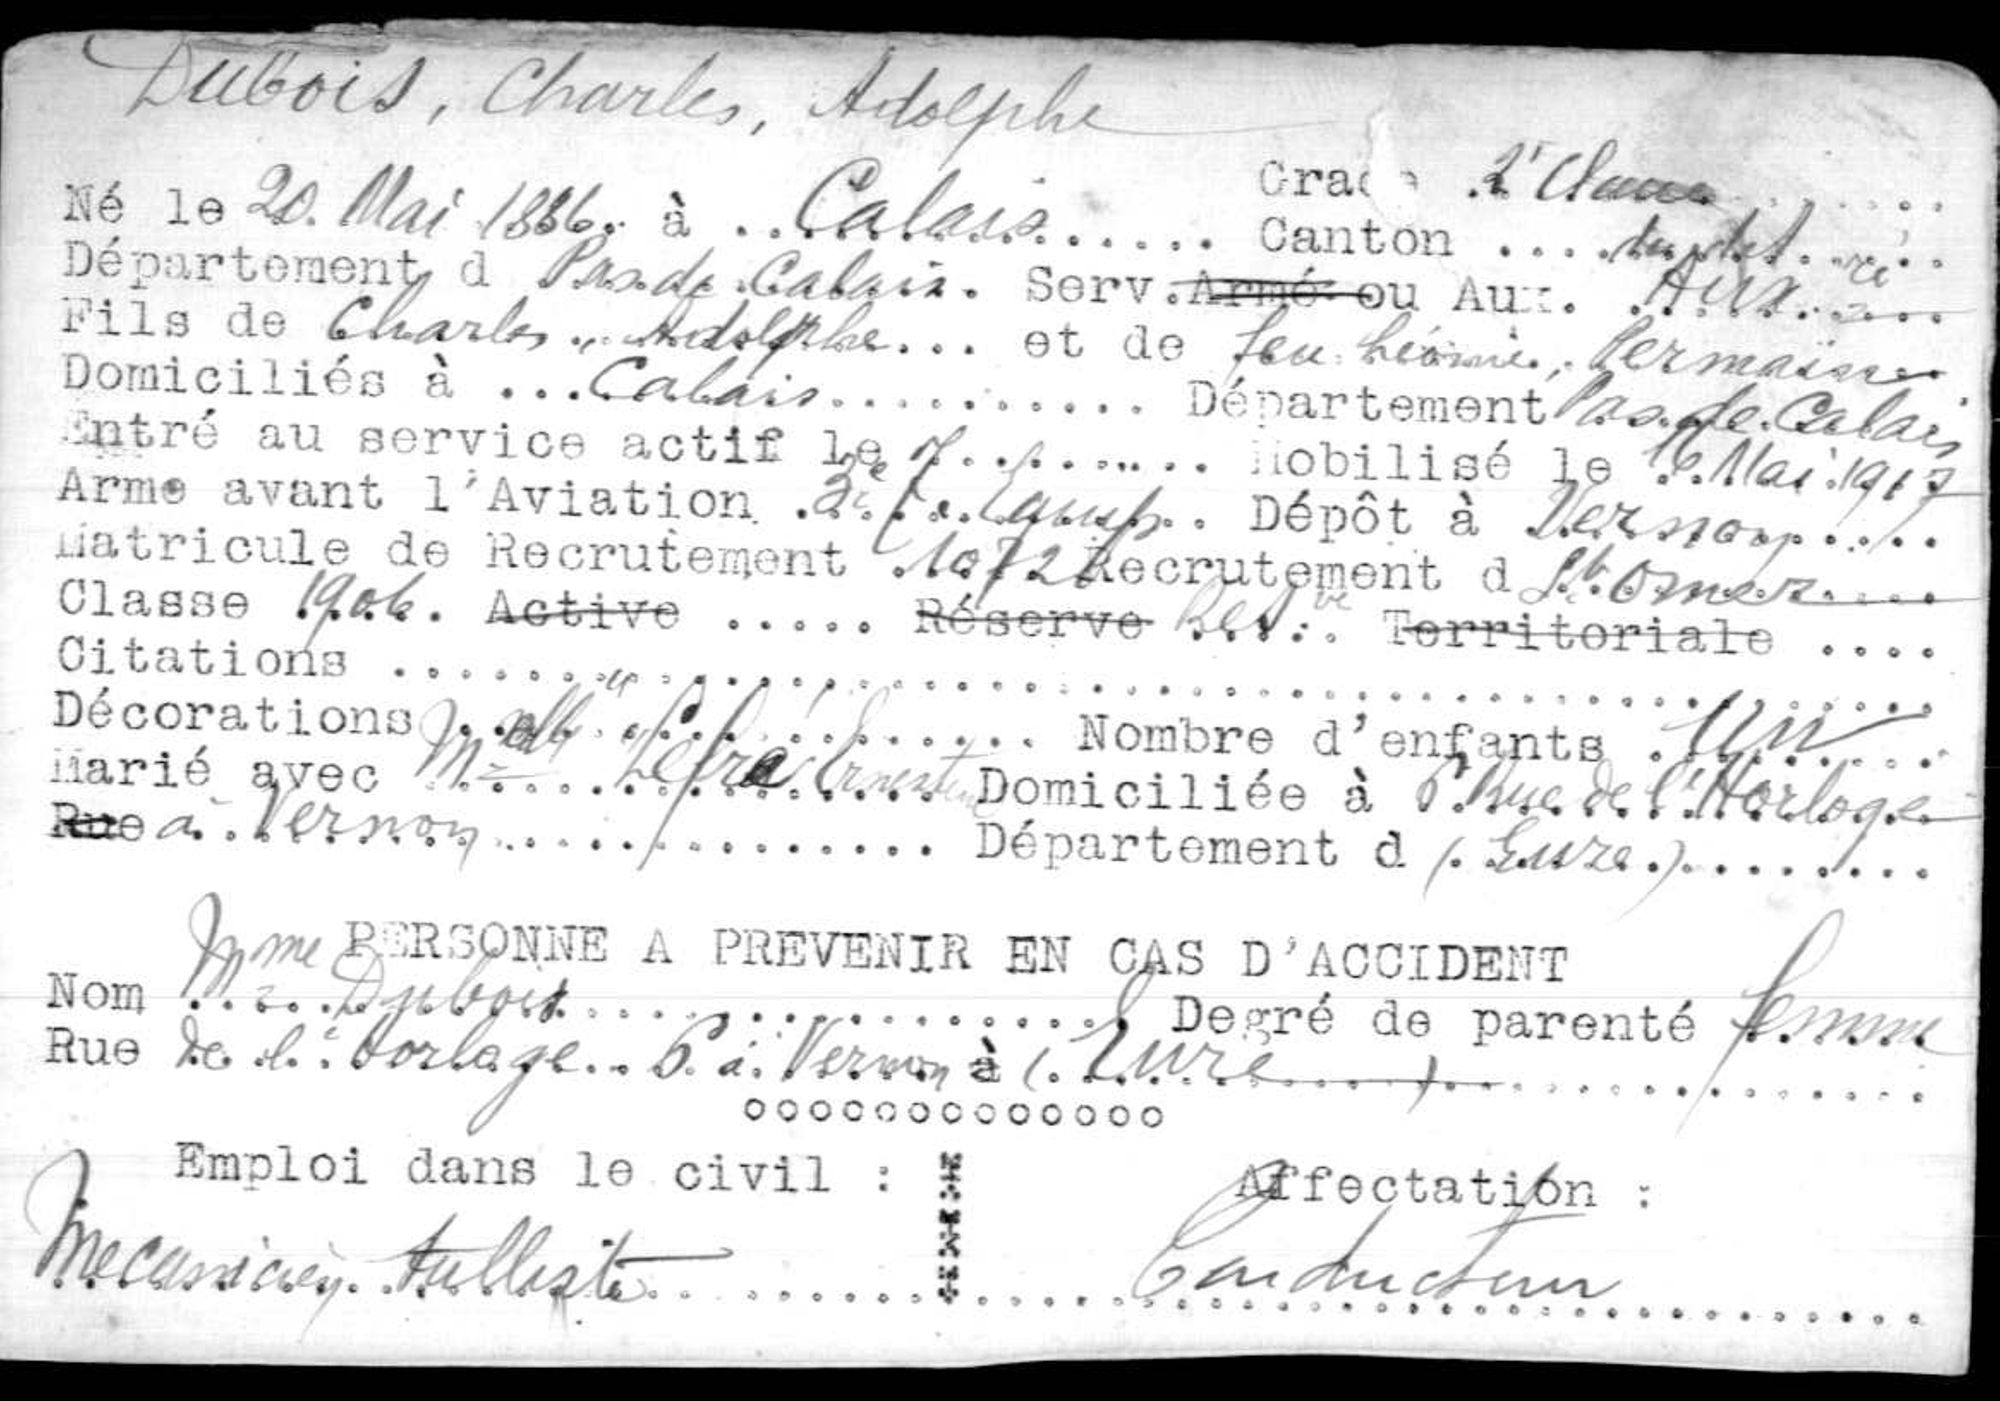 Dubois, Charles, Adolphe
Grade 2e Classe
Né le 20 Mai 1886. à ..Calais...... Canton ....
Département d Pas de Calais. Serv. Armé ou Aux. Auxre
Fils de Charles, Adolphe... et de feu Léonie, Permaine
Domiciliés à ...Calais.......... Département Pas de Calais
Entré au service actif le ........ Mobilisé le 16 Mai 1917
Arme avant l'Aviation ........ Dépôt à Vernon.....
Matricule de Recrutement .1072 Recrutement d St Omer....
Classe 1906. Active ..... Réserve Resve Territoriale ....
Citations ........................................
Décorations ............... Nombre d'enfants .Un.....
Marié avec Mme ... Ernestine Domiciliée à 6 Rue de l'Horloge
Rue à Vernon............... Département d (Eure)........
PERSONNE A PREVENIR EN CAS D'ACCIDENT
Nom Mme Dubois................ Degré de parenté femme
Rue de l'horloge.. 6 à Vernon à (Eure)...............
ooooooooooooo
Emploi dans le civil : Affectation :
Mecanicien tulliste............ Conducteur..........